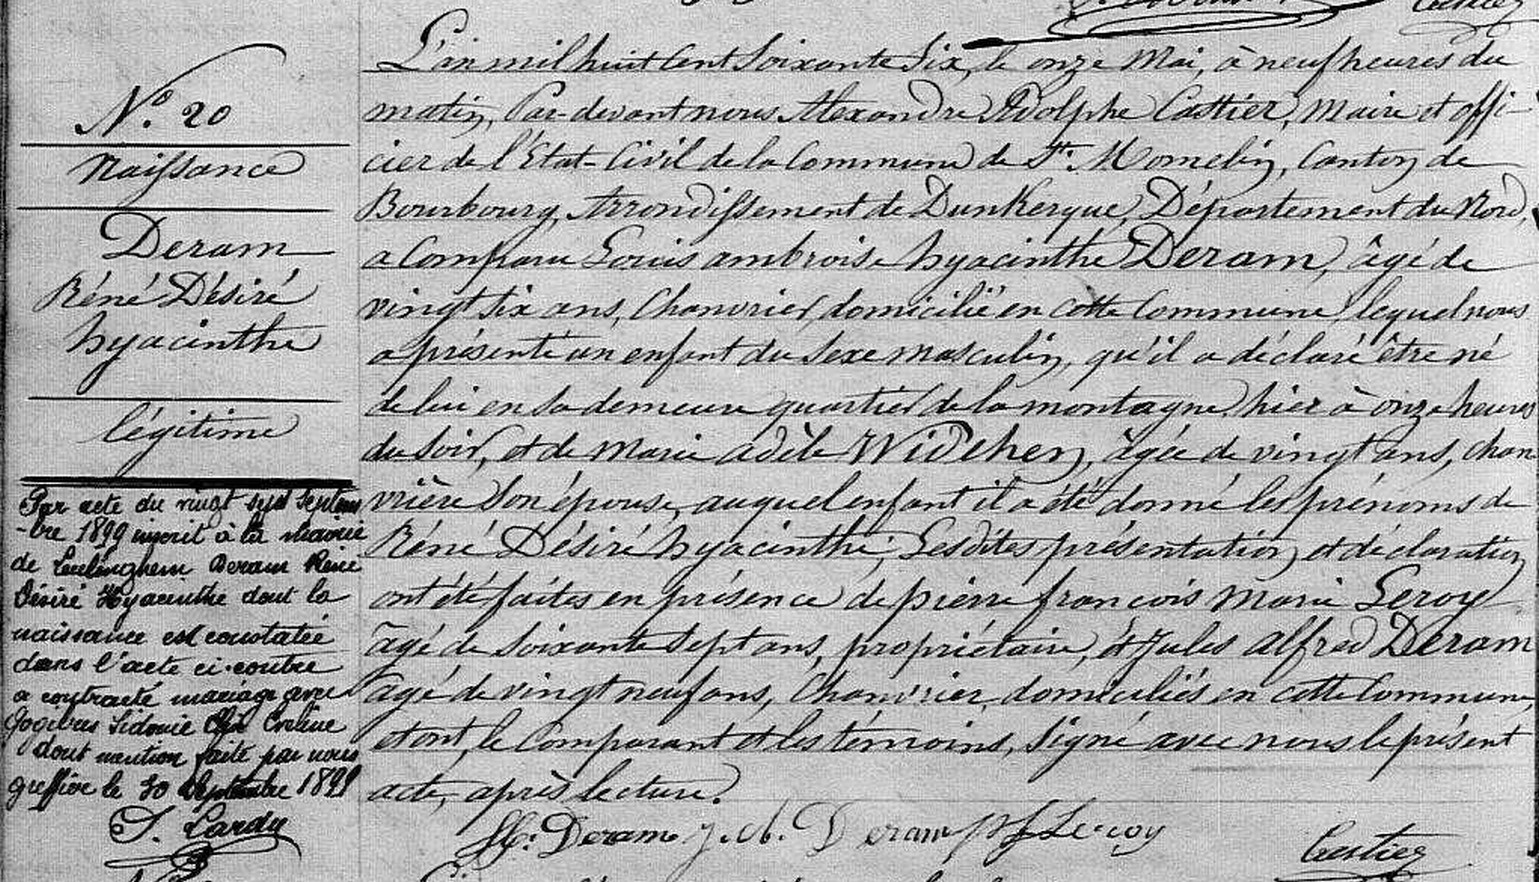 N.º 20
Naissance
Deram
Réné Désiré
hyacinthe
légitime
Par acte du vingt sept Septem
-bre 1899 inscrit à la mairie
de Leulinghem Deram Réné
Désiré Hyacinthe dont la
naissance est constatée
dans l'acte ci-contre
a contracté mariage avec
Sidonie Eveline
dont mention faite par nous
greffier le 30 Septembre 1899
L'an mil huit cent soixante six, le onze Mai, à neuf heures du
matin, Par-devant nous Alexandre Adolphe Castier, Maire et offi-
cier de l'Etat-Civil de la Commune de St. Momelin, Canton de
Bourbourg, Arrondissement de Dunkerque, Département du Nord,
a Comparu Louis ambroise hyacinthe Deram, âgé de
vingt six ans, Chanvrier, domicilié en cette Commune, lequel nous
a présenté un enfant du sexe masculin, qu'il a déclaré être né
de lui en sa demeure quartier de la montagne, hier à onze heures
du soir, et de Marie adèle Widehen, âgée de vingt ans, chan
vrière son épouse, auquel enfant il a été donné les prénoms de
Réné Désiré hyacinthe; Lesdites présentation et déclaration
ont été faites en présence de pierre françois marie Leroy
âgé de soixante sept ans, propriétaire, et Jules alfred Deram
agé de vingt neuf ans, Chanvrier, domiciliés en cette Commune
et ont, le Comparant et les témoins, signé avec nous le présent
acte, après lecture.
Deram J. A. Deram pf Leroy
Castier